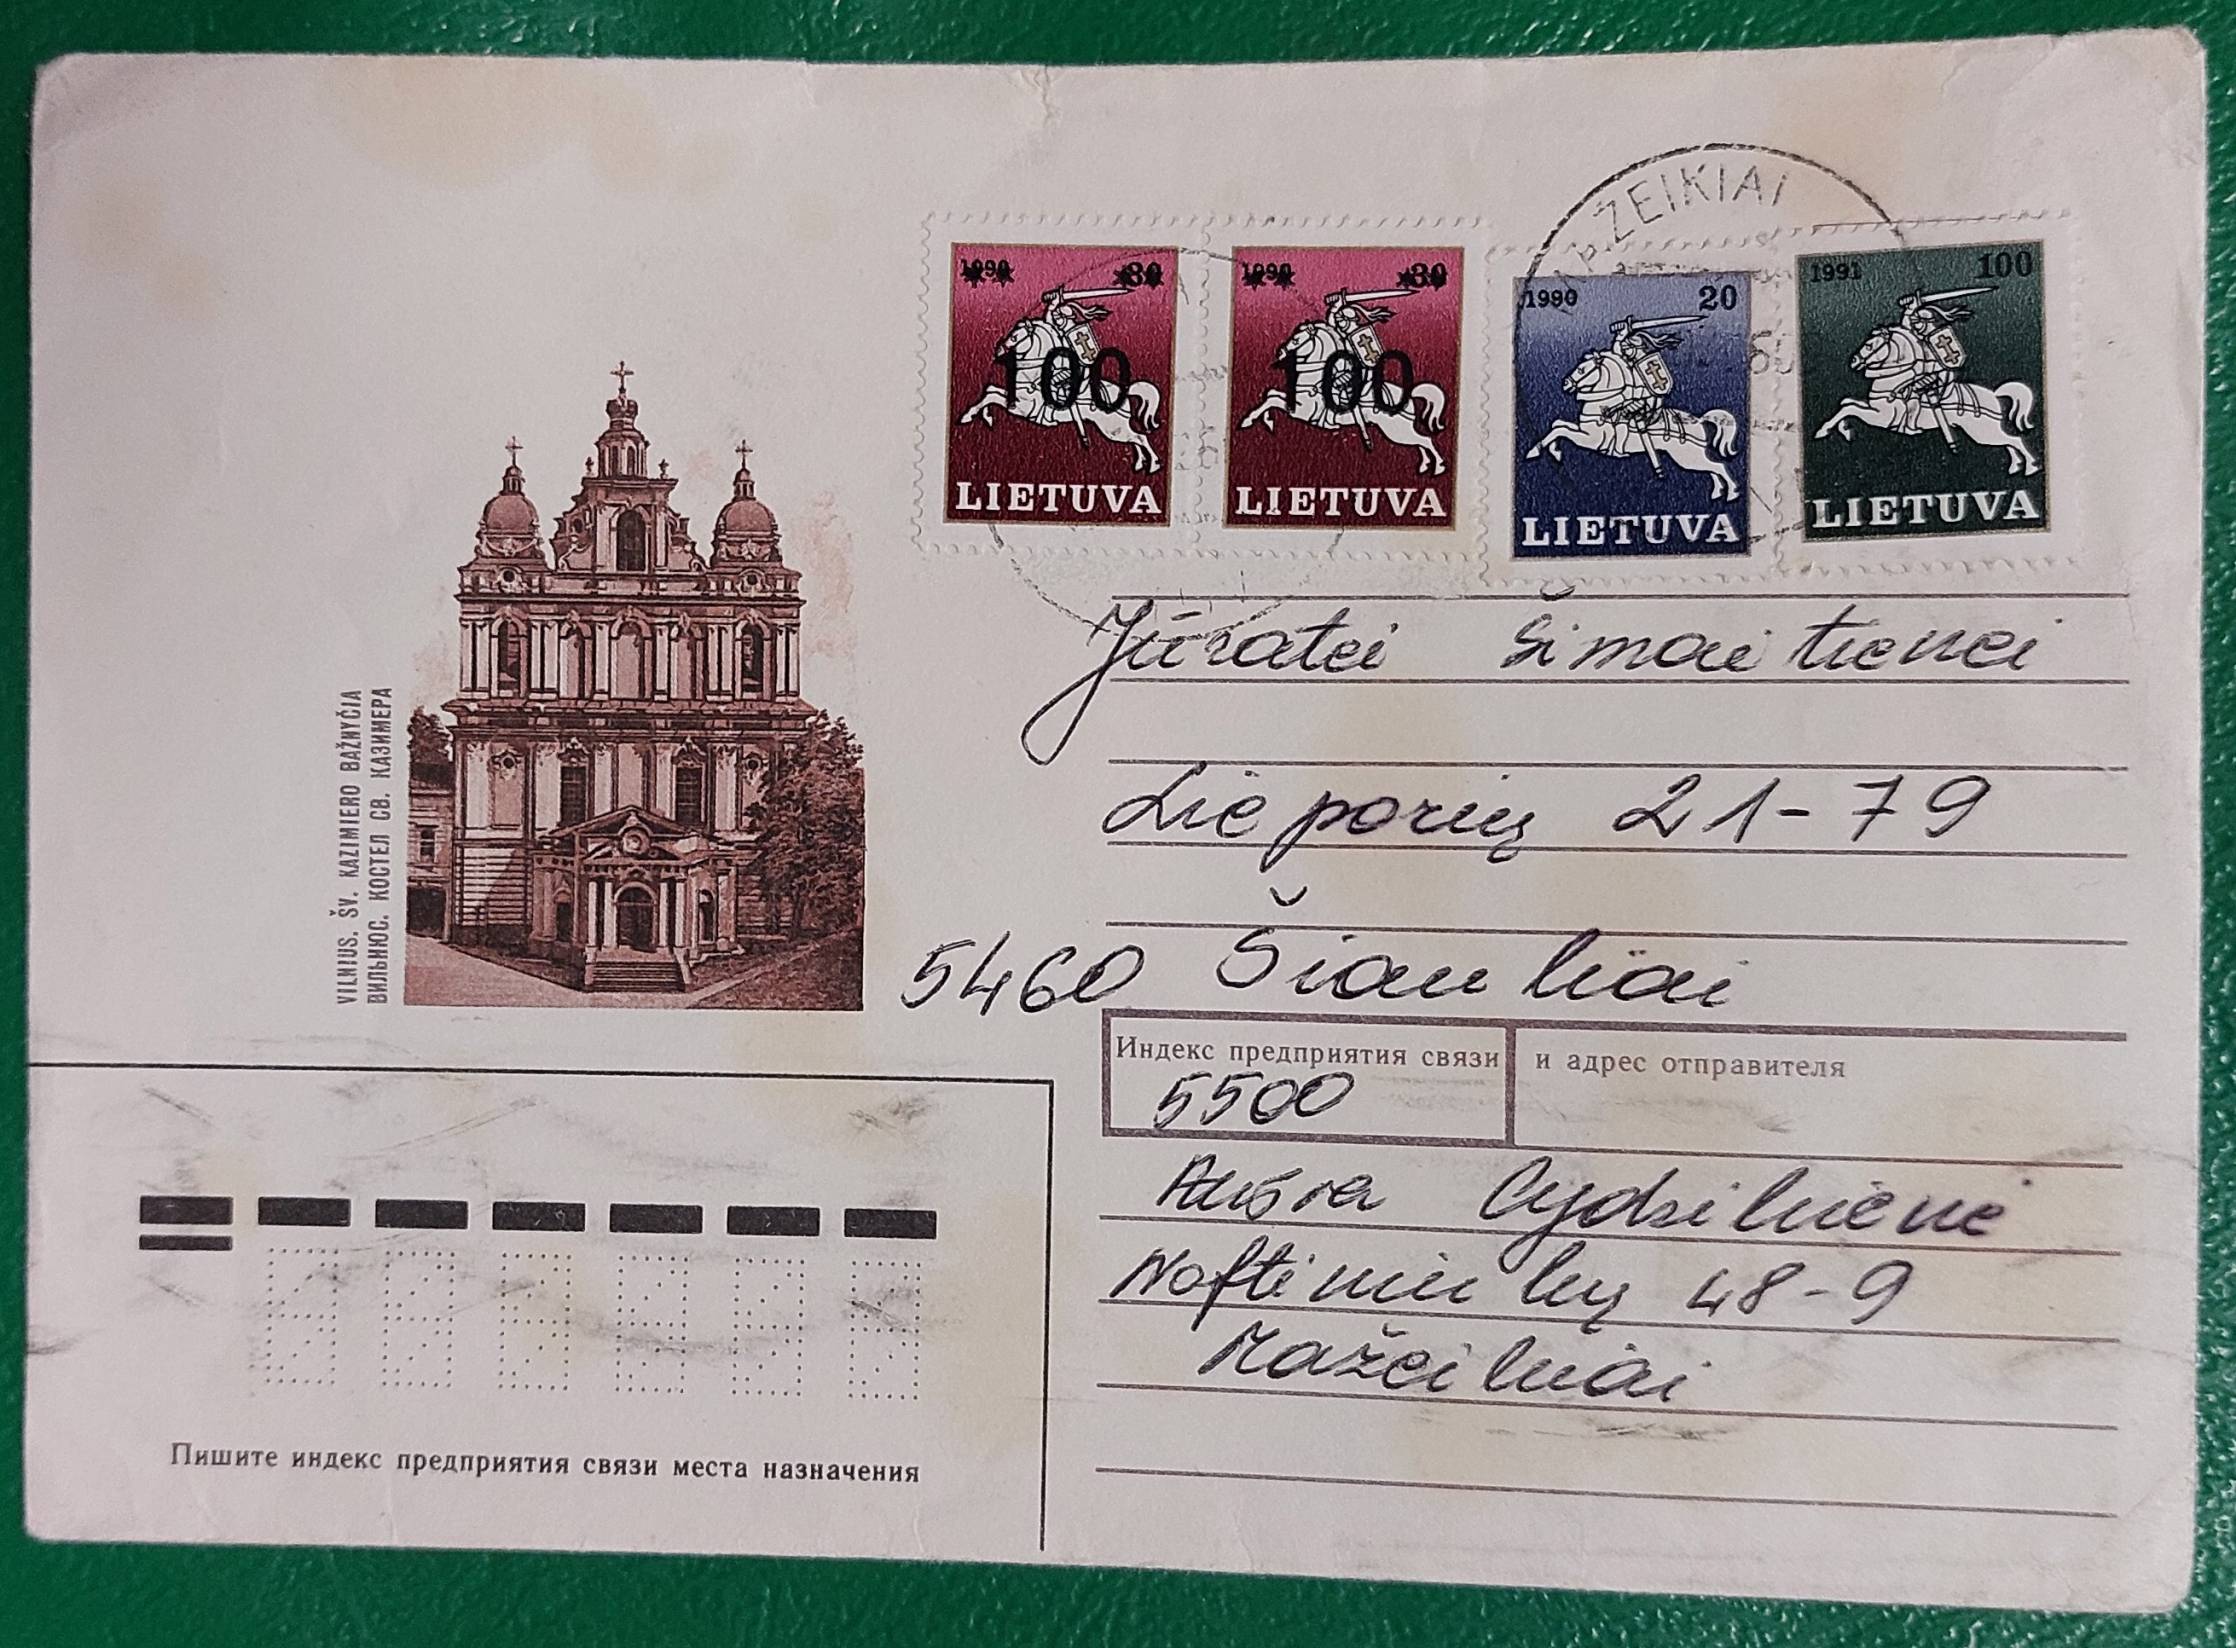 1990 30
100
LIETUVA
1990 30
100
LIETUVA
1990 20
LIETUVA
1991 100
LIETUVA
MAŽEIKIAI
VILNIUS. ŠV. KAZIMIERO BAŽNYČIA
ВИЛЬНЮС. КОСТЕЛ СВ. КАЗИМЕРА
Jūratei Šimaitienei
Lieporių 21-79
5460 Šiauliai
Индекс предприятия связи и адрес отправителя
5500
Aušra
Naftininkų 48-9
Mažeikiai
Пишите индекс предприятия связи места назначения